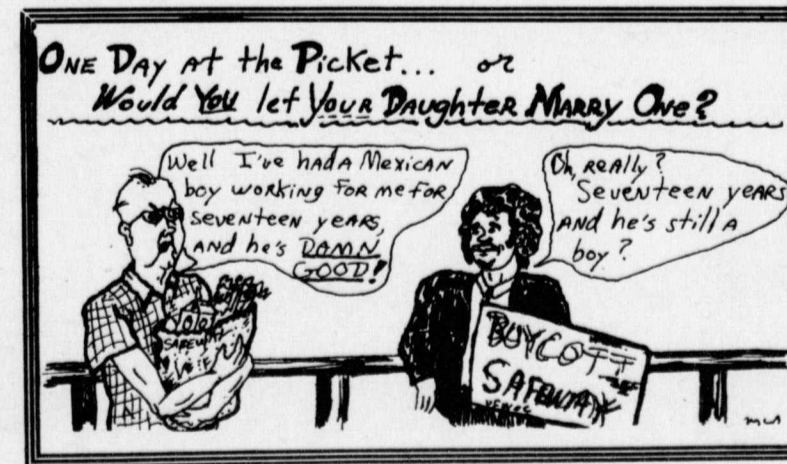 ONE DAY At the Picket... or
Would YOU let YOUR DAughteR MARRY ONe?
Well I've hAD A MexicAN
boy woRkiNg FOR me FOR
seveNteeN yeARS,
AND he's DAMN
GOOD!
Oh, ReAlly?
SeveNteeN yeARS
AND he's still A
boy?
Vote
SAFEWAY
BUYCOTT
SAFEWAY
UFWOC